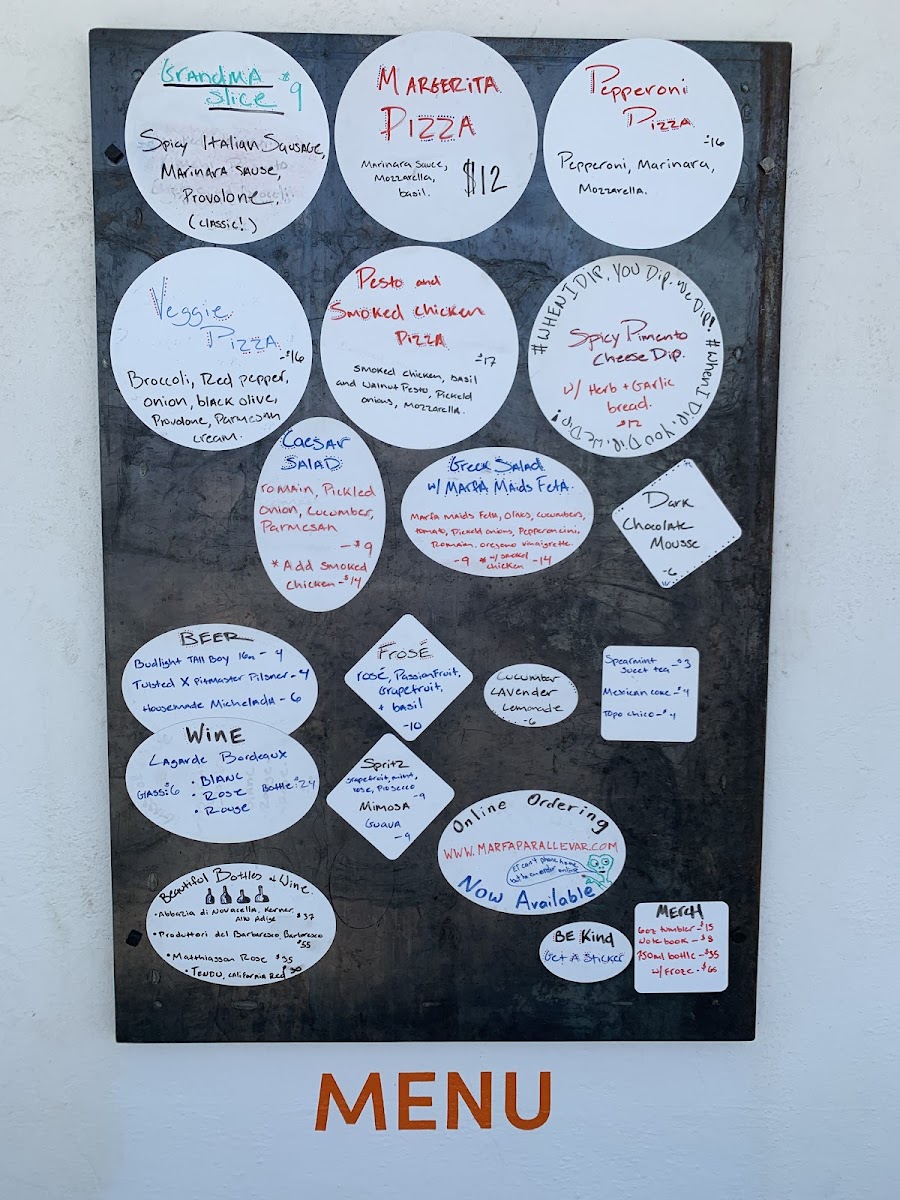 GRANDMA $9
SLICE
Spicy Italian Sausage,
Marinara Sause,
Provolone.
(CLASSIC!)
MARGERITA
PIZZA
Marinara sauce,
Mozzarella,
basil.
$12
Pepperoni
Pizza
-16
Pepperoni, Marinara,
Mozzarella.
Veggie
Pizza
-$16
Broccoli, Red pepper,
onion, black olive,
Provolone, Parmesan
cream.
Pesto and
Smoked chicken
Pizza
-$17
smoked chicken, basil
and walnut Pesto, Pickeld
onions, Mozzarella.
#WHEN I DIP, YOU DIP, WE DIP! #WHEN I DIP, YOU DIP, WE DIP!
Spicy Pimento
Cheese Dip.
w/ Herb + Garlic
bread.
$12
CAESAR
SALAD
romain, Pickled
onion, cucumber,
Parmesan
-$9
* Add smoked
chicken-$14
Greek Salad
w/ MARFA Maids FetA.
Marfa Maids Feta, olives, cucumbers,
tomato, Pickeld onions, Pepperoncini,
Romain, oregano vinaigrette.
-9 * w/ smoked
chicken -14
Dark
Chocolate
Mousse
-6
BEER
Budlight TAll Boy 16oz - 4
Twisted X Pitmaster Pilsner - 4
Housemade Michelada - 6
WINE
Lagarde Bordeaux
Glass: 6
• BLANC
• Rose
• Rouge
Bottle: $24
FROSÉ
rosé, Passionfruit,
Grapefruit,
+ basil
-10
Cucumber
LAvender
Lemonade
-6
Spearmint
sweet tea -$3
Mexican coke -$4
Topo chico -$4
Spritz
grapefruit, mint,
rose, Prosecco
-9
MIMOSA
GUAVA
-9
Online Ordering
WWW.MARFAPARALLEVAR.COM
ET can't phone home,
but he can order online
Now Available
Beautiful Bottles of Wine.
• Abbazia di Novacella, Kerner,
Alto Adige $37
• Produttori del Barbaresco, Barbaresco
$55
• Matthiasson Rose $35
• TENDU, California Red $30
BE Kind
Get A Sticker
MERCH
6oz tumbler -$15
Note book -$8
750ml bottle -$35
w/ Froze -$65
MENU